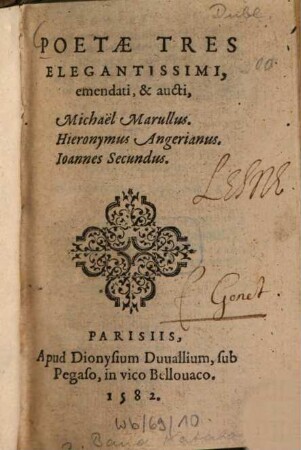 Dubl
POETÆ TRES
ELEGANTISSIMI,
emendati, & aucti,
Michaël Marullus.
Hieronymus Angerianus.
Ioannes Secundus.
PARISIIS,
Apud Dionysium Duuallium, sub
Pegaso, in vico Bellouaco.
1582.
Wb/69/10